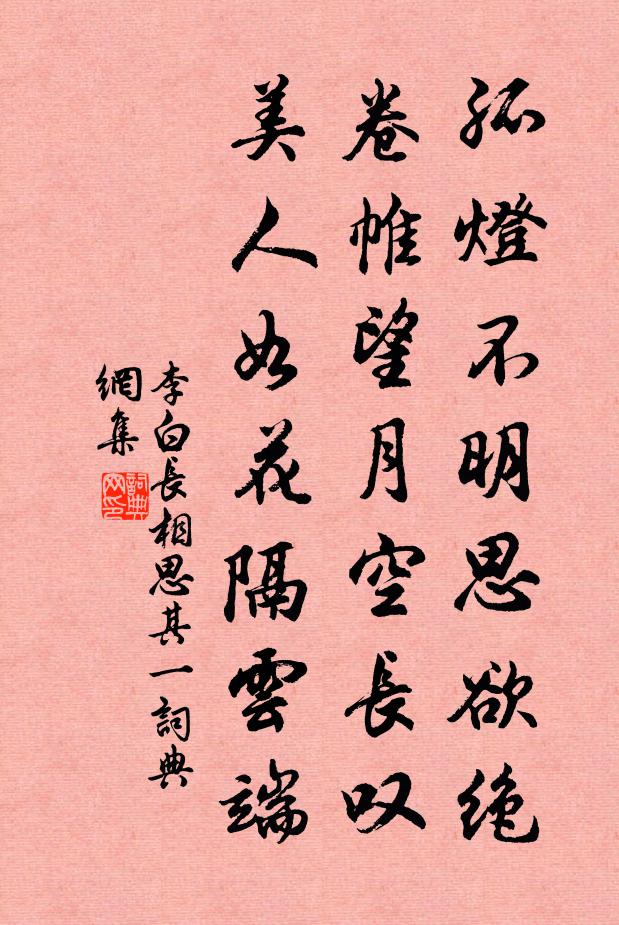 孤燈不明思欲絶
卷帷望月空長叹
美人如花隔雲端
李白長相思其一詞典
網集
詞典
网印